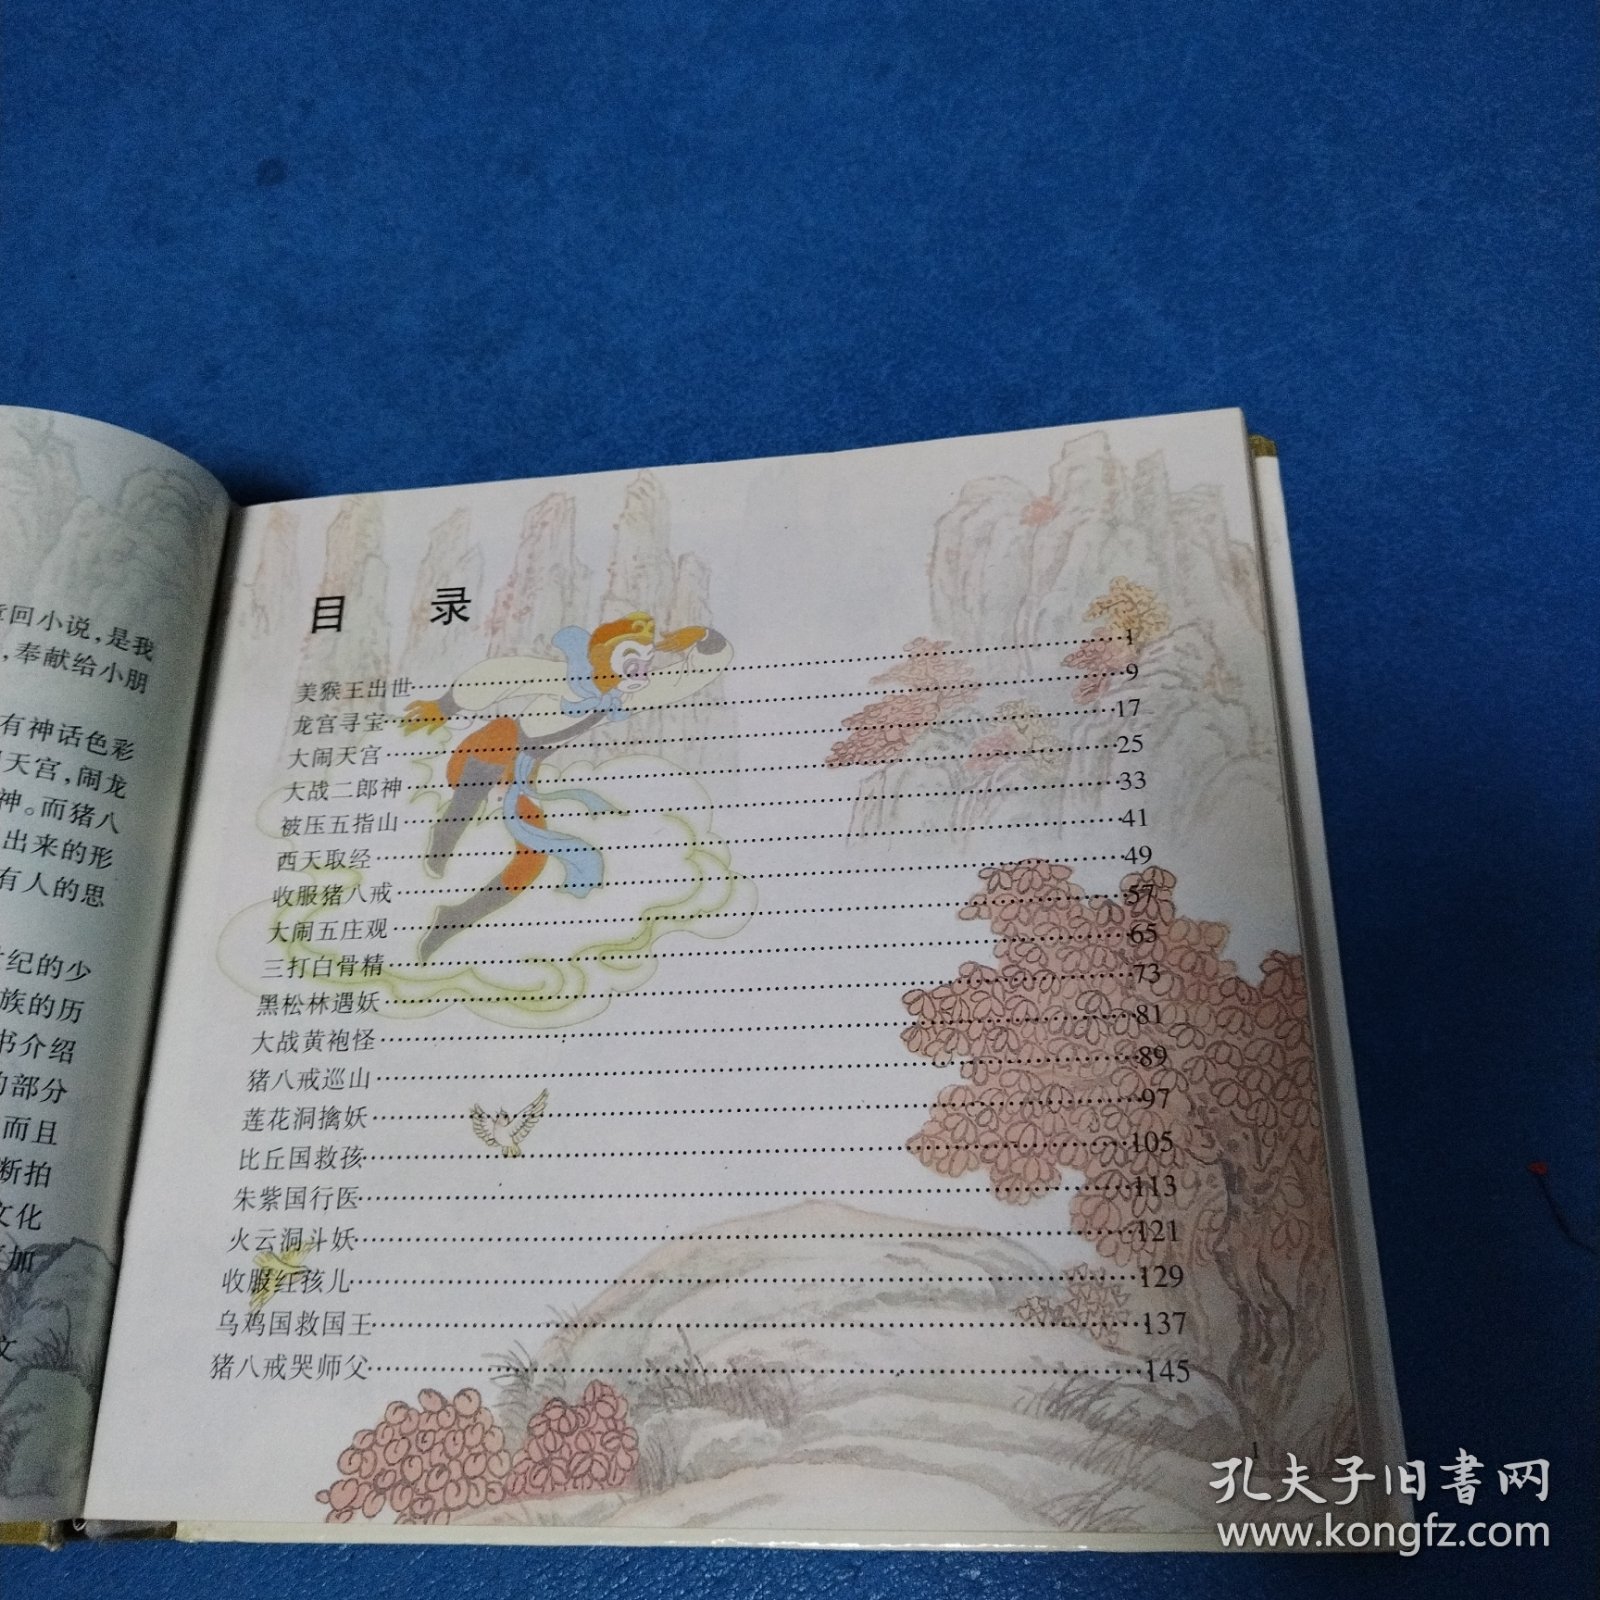 回小说,是我
,奉献给小朋
有神话色彩
天宫,闹龙
神。而猪八
出来的形
有人的思
纪的少
族的历
书介绍
的部分
而且
断拍
文化
加
文
目 录
美猴王出世 1
龙宫寻宝 9
大闹天宫 17
大战二郎神 25
被压五指山 33
西天取经 41
收服猪八戒 49
大闹五庄观 57
三打白骨精 65
黑松林遇妖 73
大战黄袍怪 81
猪八戒巡山 89
莲花洞擒妖 97
比丘国救孩 105
朱紫国行医 113
火云洞斗妖 121
收服红孩儿 129
乌鸡国救国王 137
猪八戒哭师父 145
1
孔夫子旧书网
www.kongfz.com